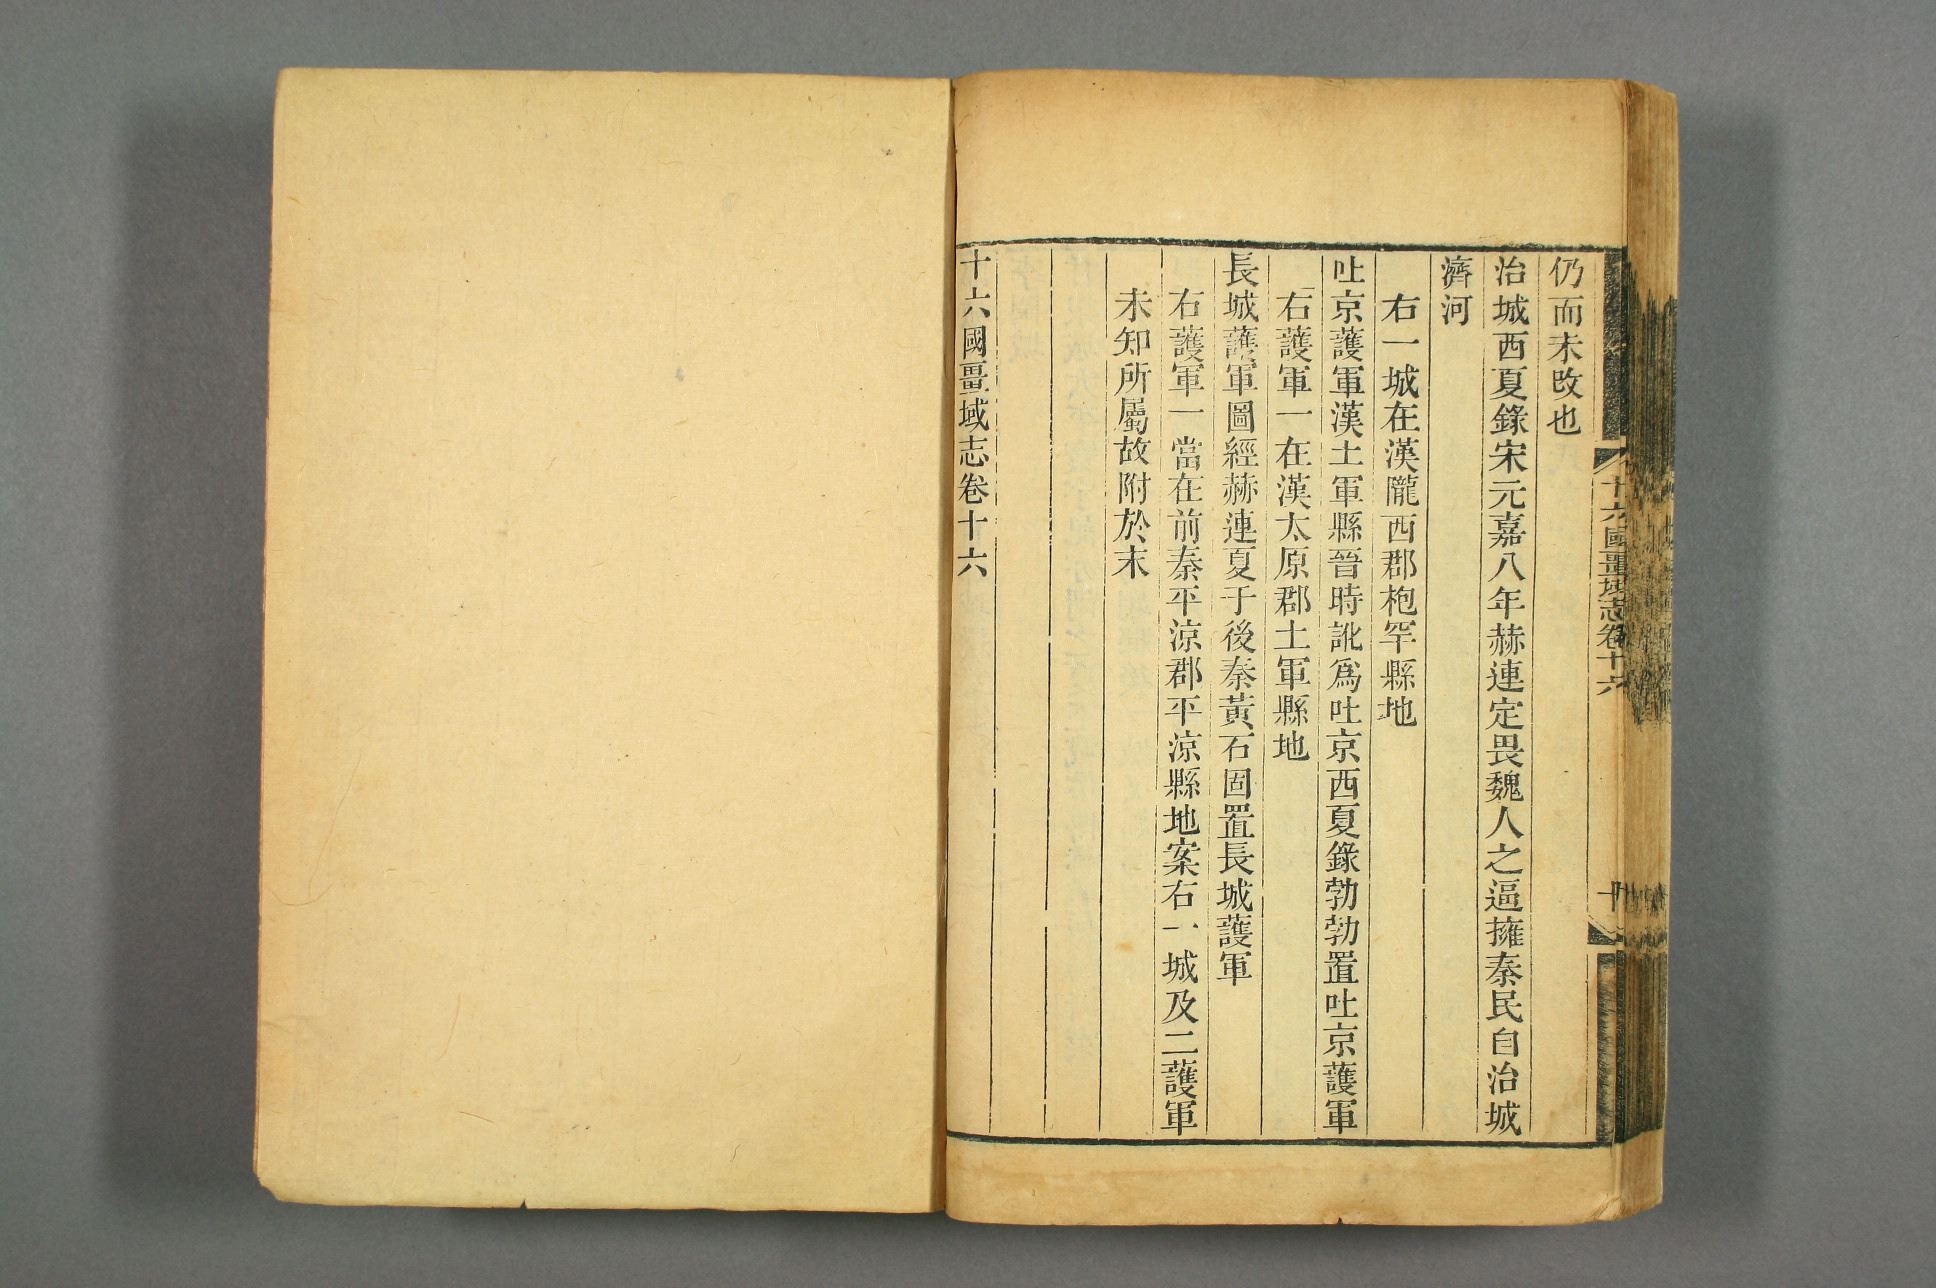 仍而未改也
治城西夏錄宋元嘉八年赫連定畏魏人之逼擁秦民自治城
濟河
右一城在漢隴西郡枹罕縣地
吐京護軍漢土軍縣晉時訛爲吐京西夏錄勃勃置吐京護軍
右護軍一在漢太原郡土軍縣地
長城護軍圖經赫連夏于後秦黃石固置長城護軍
右護軍一當在前秦平涼郡平涼縣地案右一城及二護軍
未知所屬故附於末
十六國畺域志卷十六
十六國畺域志卷十六
十